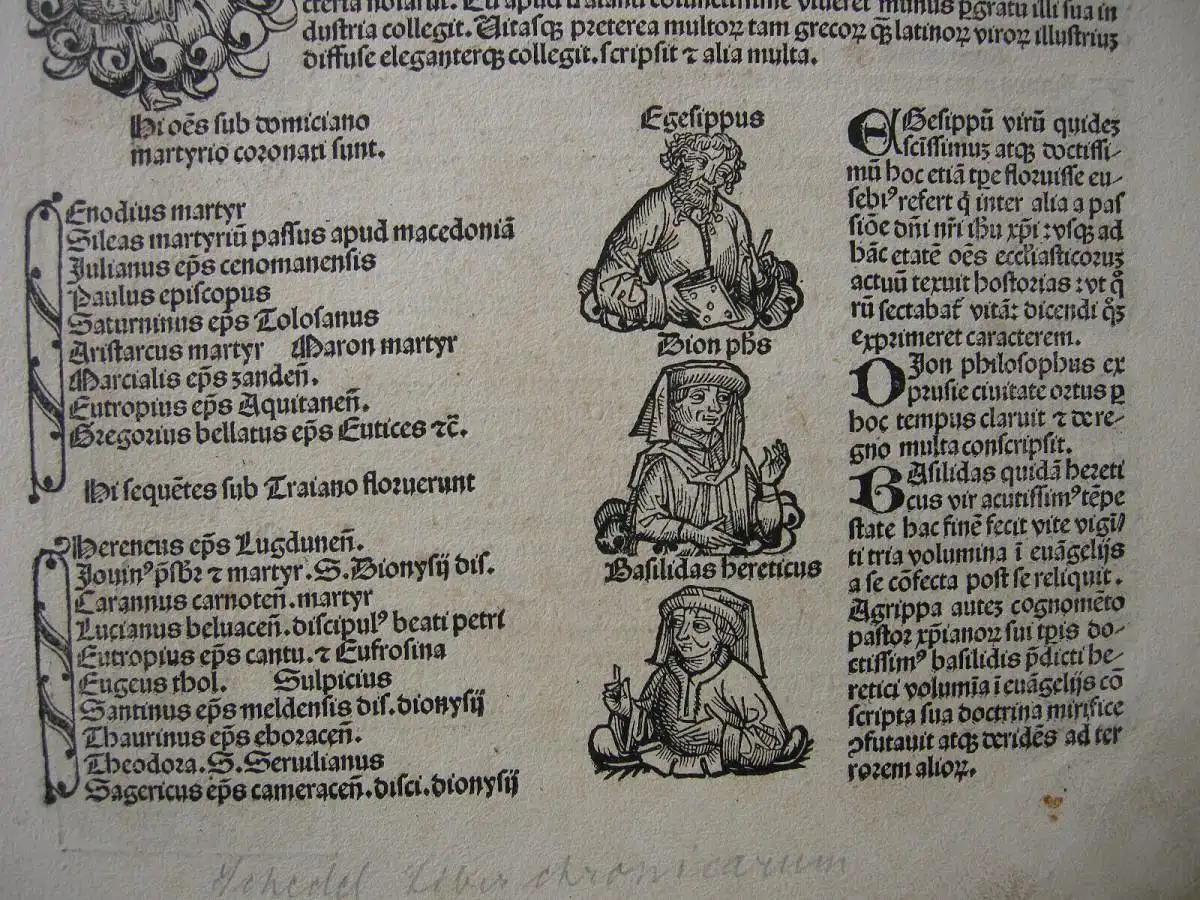 cteria notarat. Cū apud traianū coniunctissime viueret munus ꝑgratū illi sua in
dustria collegit. Uitasqꝫ preterea multoꝝ tam grecoꝝ qꝫ̄ latinoꝝ viroꝝ illustriuꝫ
diffuse eleganterqꝫ collegit. scripsit ⁊ alia multa.
Hi oēs sub domiciano
martyrio coronati sunt.
Enodius martyr
Sileas martyriū passus apud macedoniā
Julianus ep̄s cenomanensis
Paulus episcopus
Saturninus ep̄s Tolosanus
Aristarcus martyr Maron martyr
Marcialis ep̄s zandeñ.
Eutropius ep̄s Aquitaneñ.
Gregorius bellatus ep̄s Eutices ⁊c̄.
Hi sequētes sub Traiano floruerunt
Herencus ep̄s Lugduneñ.
Jouinꝰ p̄sbr̄ ⁊ martyr. S. Dionysij dis.
Carannus carnoteñ. martyr
Lucianus beluaceñ. discipulꝰ beati petri
Eutropius ep̄s cantu. ⁊ Eufrosina
Eugeus thol. Sulpicius
Santinus ep̄s meldensis dis. dionysij
Thaurinus ep̄s eboraceñ.
Theodora. S. Seruilianus
Sagericus ep̄s cameraceñ. disci. dionysij
Egesippus
Dion ph̄s
Basilidas hereticus
EGesippū virū quidez
ascissimuz atqꝫ doctissi-
mū hoc etiā tp̄e floruisse eu-
sebiꝰ refert q̄ inter alia a pas
siōe dn̄i nr̄i ih̄u xp̄i: vsqꝫ ad
hāc etatē oēs eccl̄iasticoruꝫ
actuū texuit hostorias: vt qͦ
rū sectabat᷑ vitā: dicendi qͦꝫ
exprimeret caracterem.
DJon philosophus ex
prusie ciuitate ortus ꝑ
hoc tempus claruit ⁊ de re-
gno multa conscripsit.
BAsilidas quidā hereti
cus vir acutissimꝰ tēpe
state hac finē fecit vite vigin̄
ti tria volumina ī euāgelijs
a se cōfecta post se reliquit.
Agrippa autez cognomēto
pastor xp̄ianoꝝ sui tp̄is do-
ctissimꝰ basilidis p̄dicti he-
retici volumīa ī euāgelijs cō
scripta sua doctrina mirifice
ꝯfutauit atqꝫ deridēs ad ter
rorem alioꝝ.
Schedel Liber chronicarum